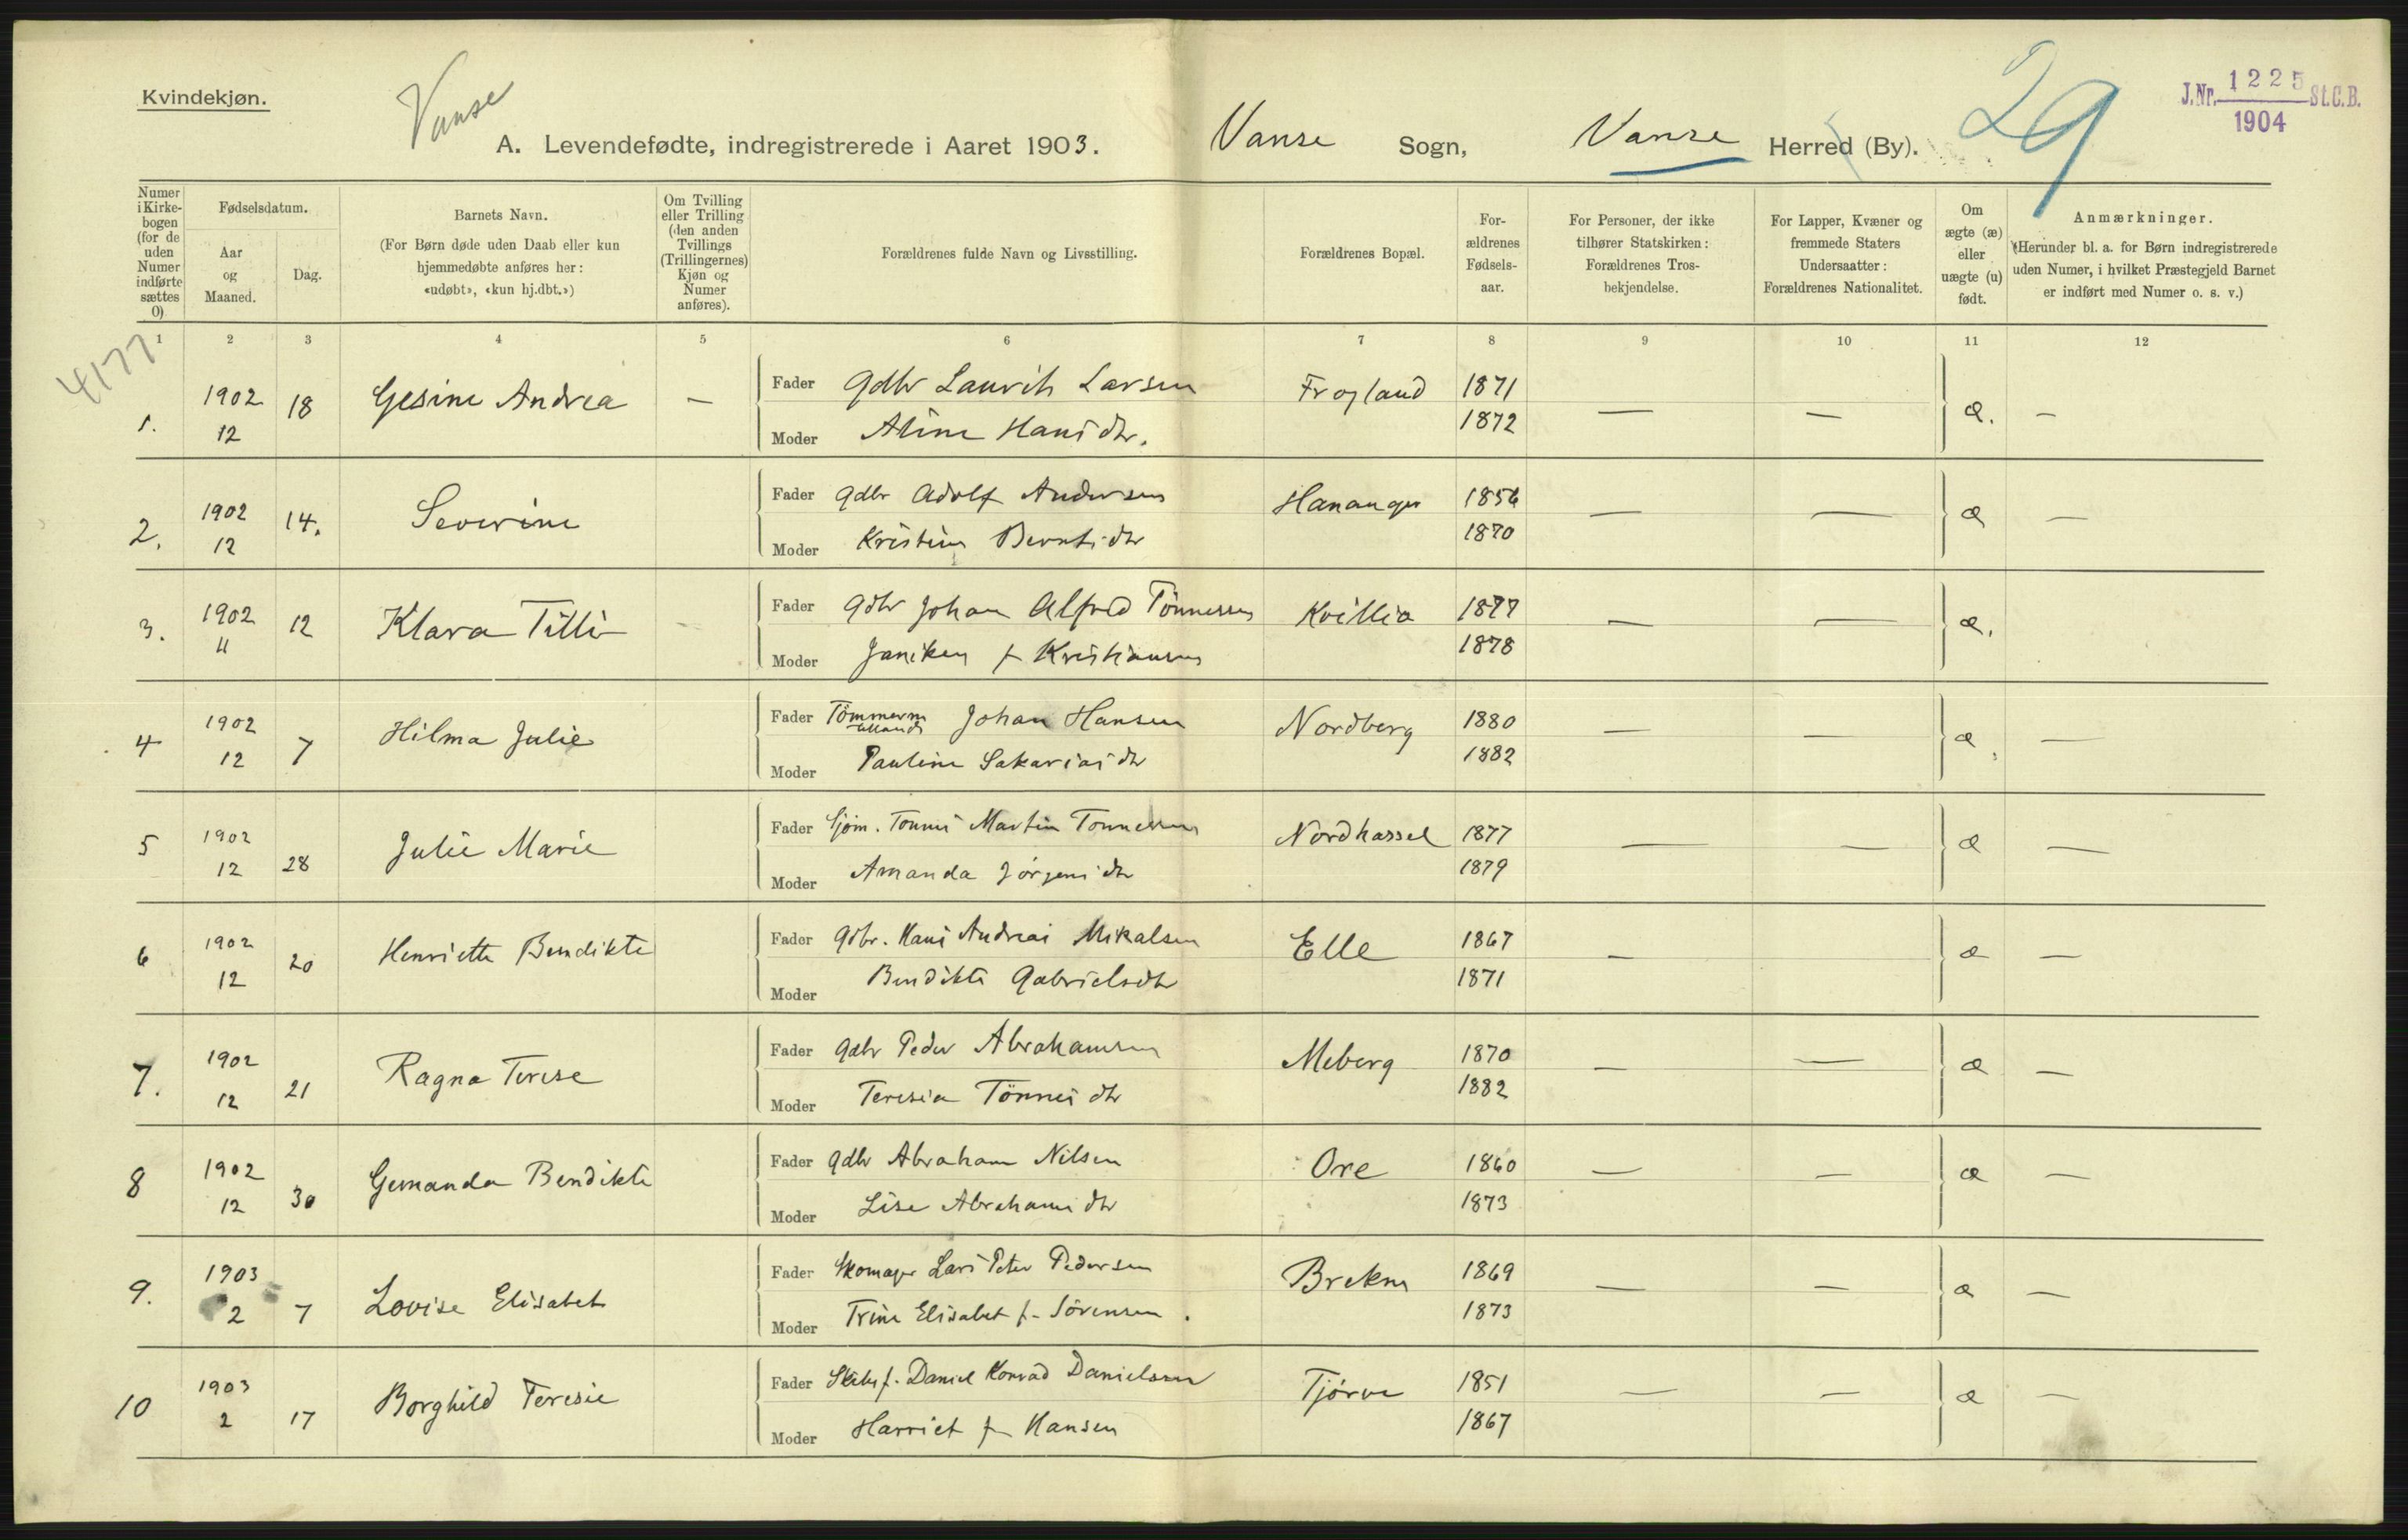 Kvindekjøn.
Vanse
A. Levendefødte, indregistrerede i Aaret 1903.
Vanse Sogn, Vanse Herred (By).
29
J.Nr. 1225 St.C.B.
1904
Numer i Kirke-bogen (for de uden Numer indførte sættes 0)
Fødselsdatum.
Aar og Maaned.
Dag.
Barnets Navn.
(For Børn døde uden Daab eller kun hjemmedøbte anføres her: «udøbt», «kun hj.dbt.»)
Om Tvilling eller Trilling (den anden Tvillings (Trillingernes) Kjøn og Numer anføres).
Forældrenes fulde Navn og Livsstilling.
Forældrenes Bopæl.
For-ældrenes Fødsels-aar.
For Personer, der ikke tilhører Statskirken: Forældrenes Tros-bekjendelse.
For Lapper, Kvæner og fremmede Staters Undersaatter: Forældrenes Nationalitet.
Om ægte (æ) eller uægte (u) født.
Anmærkninger.
(Herunder bl. a. for Børn indregistrerede uden Numer, i hvilket Præstegjeld Barnet er indført med Numer o. s. v.)
1 2 3 4 5 6 7 8 9 10 11 12
4177
1. 1902 12 18 Gesine Andrea — Fader Gdbr Laurits Larsen Frogland 1871 — — æ. —
Moder Aline Hansdtr. 1872
2. 1902 12 14. Severine Fader Gdbr Adolf Andersen Hananger 1856 — — æ —
Moder Kristine Berntsdtr 1870
3. 1902 11 12 Klara Tilli Fader Gdbr Johan Alfred Tönnessen Kvillia 1877 — — æ.
Moder Janiken f Kristiansen 1878
4 1902 12 7 Hilma Julie Fader Tömmerm Johan Hansen Nordberg 1880 — — æ. —
Moder Pauline Sakariasdtr 1882
5 1902 12 28 Julie Marie Fader Sjöm. Tönnes Martin Tönnessen Nordhassel 1877 — — æ —
Moder Amanda Jörgensdtr 1879
6 1902 12 20 Henriette Bendikte Fader Gdbr. Hans Andreas Mikalsen Elle 1867 — æ —
Moder Bendikte Gabrielsdtr 1871
7. 1902 12 21 Ragna Terese Fader Gdbr Peder Abrahamsen Meberg 1870 — — æ —
Moder Teresia Tönnesdtr 1882
8 1902 12 30 Gemanda Bendikte Fader Gdbr Abraham Nilsen Ore 1860 — — æ —
Moder Lise Abrahamsdtr 1873
9. 1903 2 7 Lovise Elisabet Fader Skomager Lars Peter Pedersen Brekne 1869 — — æ —
Moder Trine Elisabet f. Sörensen. 1873
10 1903 2 17 Borghild Teresie Fader Skibsf. Daniel Konrad Danielsen Tjörve 1851 — — æ —
Moder Harriet f Hansen 1867